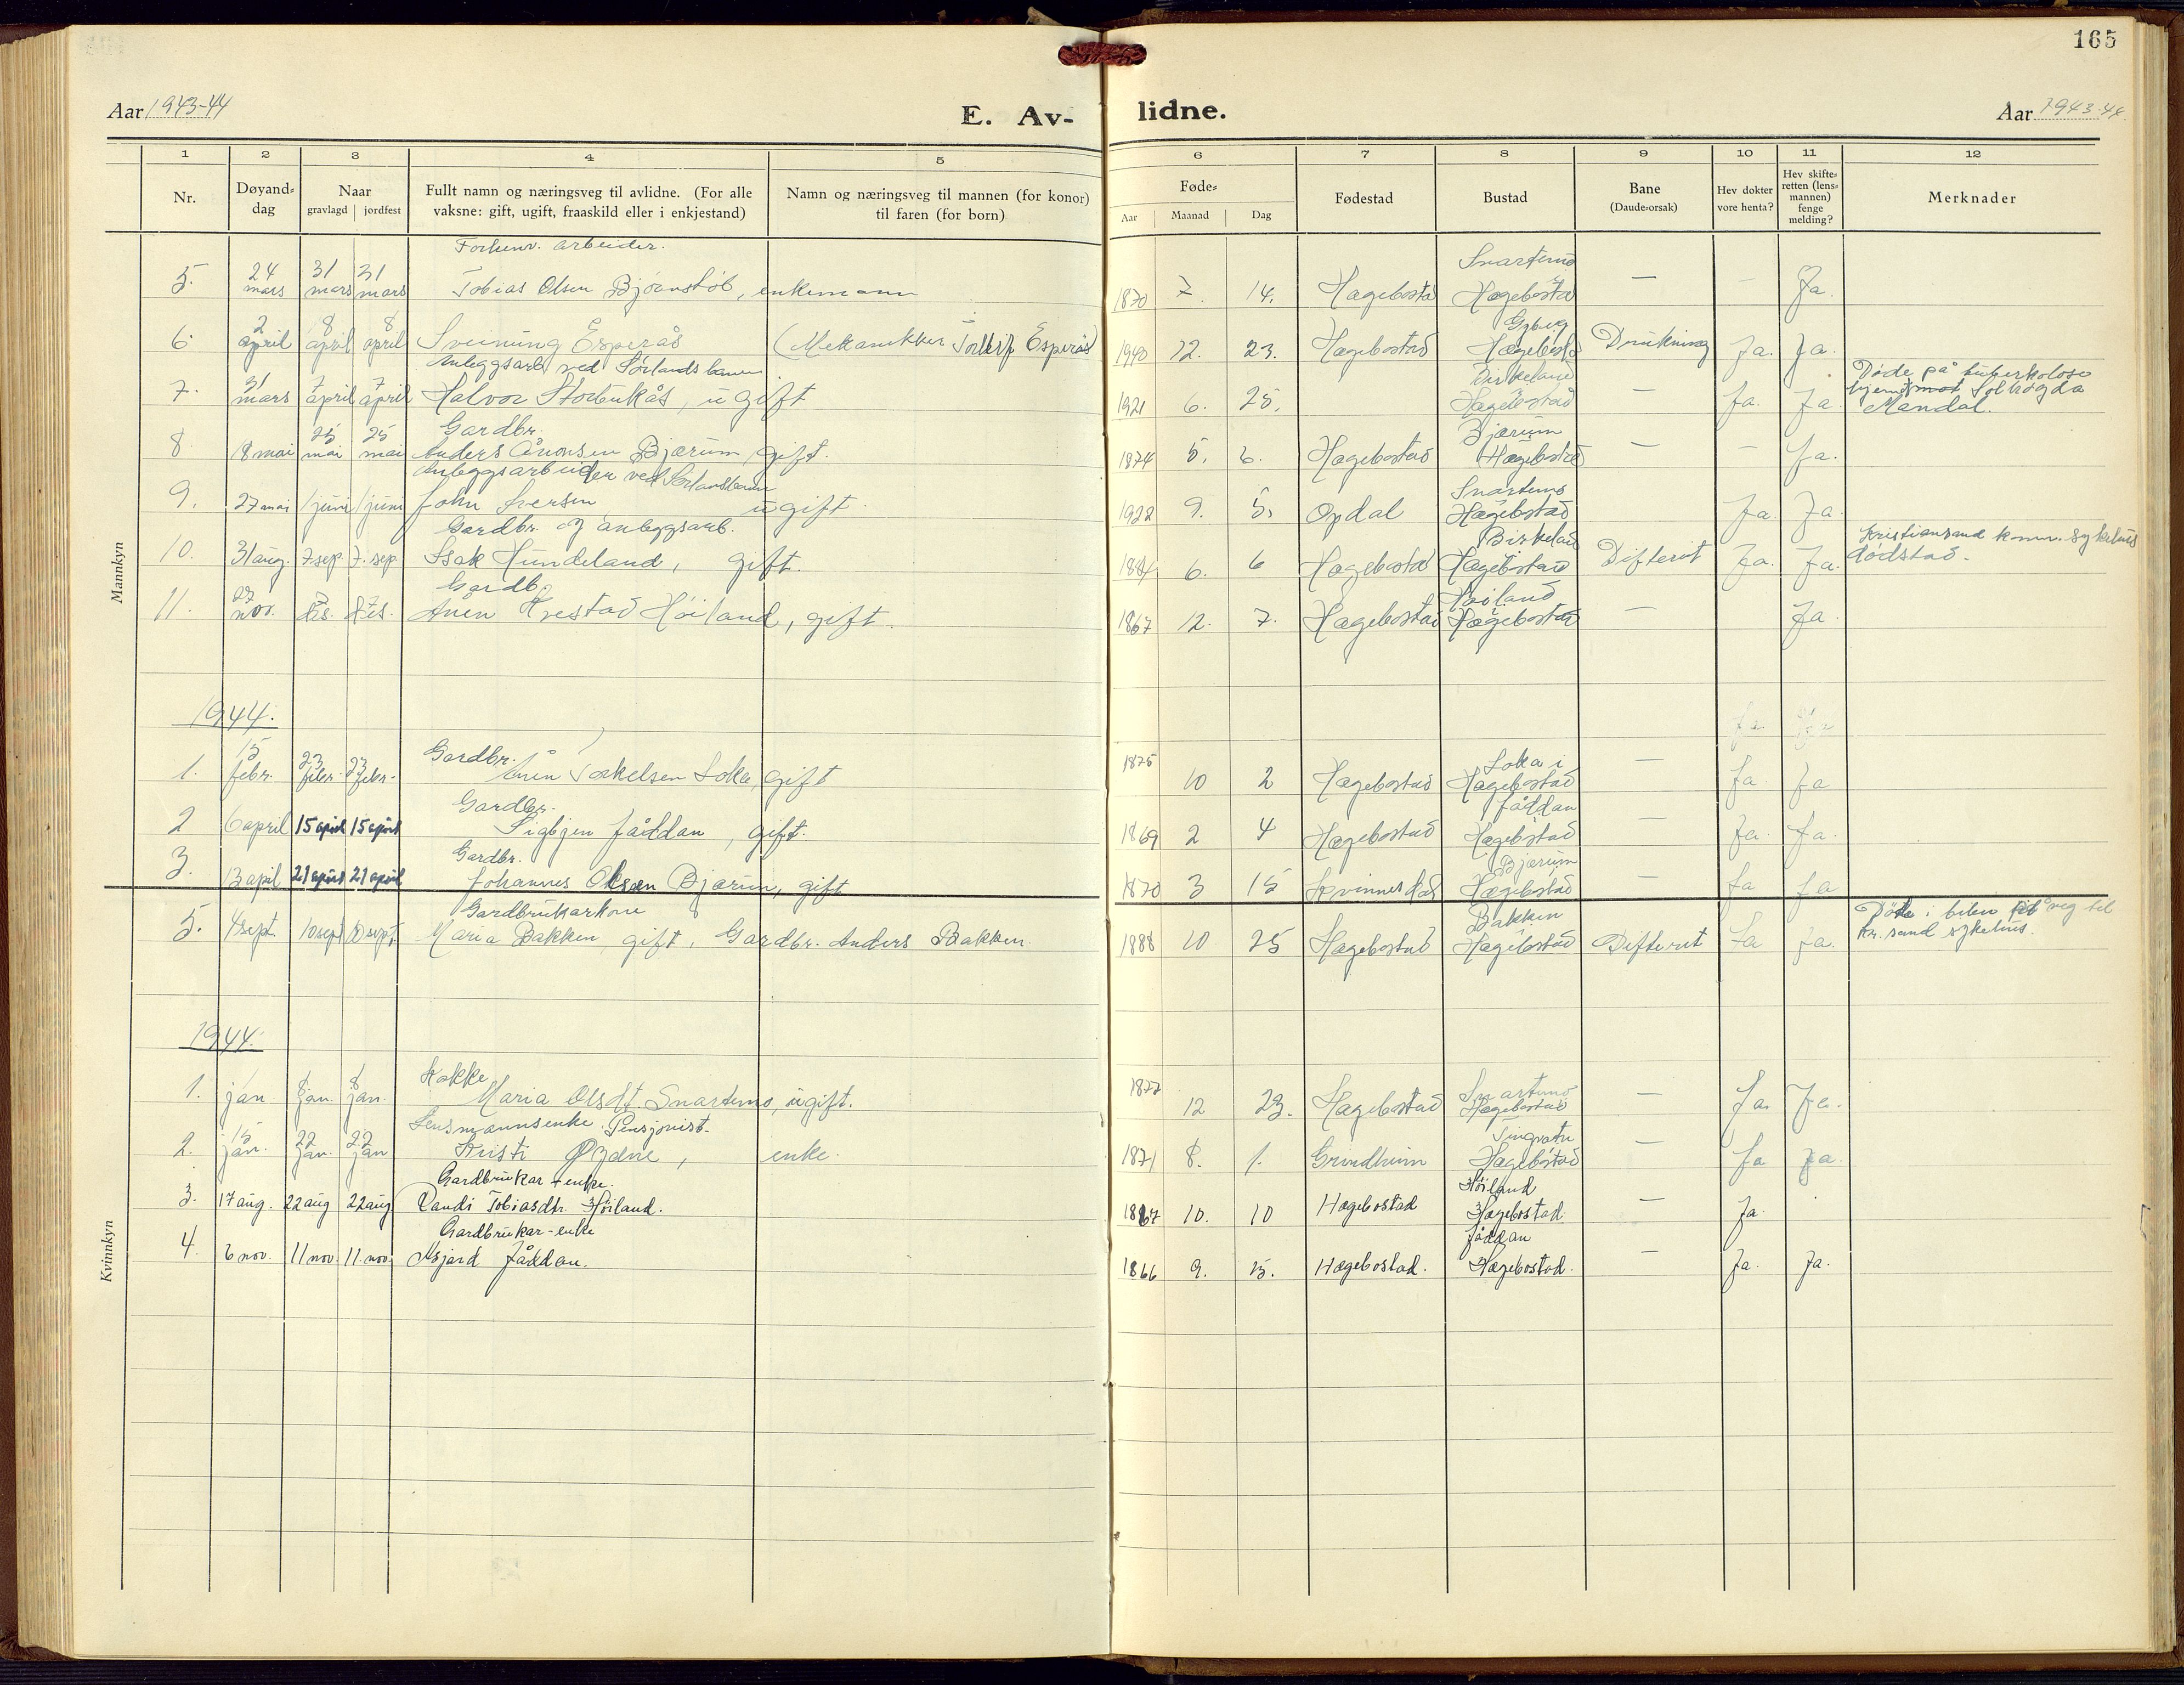 165
Aar 1943-44
E. Av-
lidne.
Aar 1943-44
1 2 3 4 5 6 7 8 9 10 11 12
Nr.
Døyand-dag
Naar
gravlagd | jordfest
Fullt namn og næringsveg til avlidne. (For alle
vaksne: gift, ugift, fraaskild eller i enkjestand)
Namn og næringsveg til mannen (for konor)
til faren (for born)
Føde-
Aar Maanad Dag
Fødestad
Bustad
Bane
(Daude-orsak)
Hev dokter
vore henta?
Hev skifte-
retten (lens-
mannen)
fenge
melding?
Merknader
Mannkyn
Forhenv. arbeider. Snartemo
5. 24 mars 31 mars 31 mars Tobias Olsen , enkemann 1870 7. 14. Hægebostad Hægebostad — — Ja.
6. 2 april 8 april 8 april Sveinung Esperås (Mekanikker Torleif Esperås) 1940 12. 23. Hægebostad Gyberg Hægebostad Drukning Ja. Ja.
Anleggsarb. ved Sørlandsbanen Birkeland Døde på tuberkolose
7. 31 mars 7 april 7 april Halvor Storbukås, ugift 1921 6. 25. Hægebostad Ja. Ja. hjemmet Solhøgda
Mandal.
Gardbr. Bjærum
8. 18 mai 25 mai 25 mai Anders Ånonsen Bjærum, gift. 1874 5. 6. Hægebostad Hægebostad — — Ja.
Anleggsarbeider ved Sørlandsbanen Snartemo
9. 27 mai 1 juni 1 juni John Iversen ugift. 1922 9. 5. Opdal Hægebostad Ja. Ja.
Gardbr. og anleggsarb. Birkeland Kristiansand kom. sykehus
10. 31 aug. 7 sep. 7. sep. Isak Hundeland, gift. 1884 6. 6 Hægebostad Hægebostad Difterit Ja. Ja. dødstad.
Gardbr. Høiland
11. 27 nov. 7 des. 7 des. Ånen Høiland, gift. 1867 12. 7. Hægebostad Hægebostad — Ja.
1944.
Gardbr. Loka i
1. 15 febr. 23 febr. 23 febr. Ånen Torkelsen Loka, gift 1875 10 2 Hægebostad Hægebostad — Ja. Ja
Gardbr. Jåddan
2 6 april 15 april 15 april Sigbjen Jåddan, gift. 1869 2 4 Hægebostad Hægebostad — Ja. Ja.
Gardbr. Bjærum
3. 13 april 21 april 21 april Johannes Olsen Bjærum, gift 1870 3 15 Kvinnesdal Hægebostad — Ja Ja
Kvinnkyn
Gardbrukarkone Bakken Døde i bilen på veg til
5. 4 sept. 10 sept 10 sept. Maria Bakken, gift, Gardbr. Anders Bakken 1888 10 25 Hægebostad Hægebostad Difterit Ja Ja. Kr. sand sykehus.
1944.
Kokke Snartemo
1. 1 jan 8 jan. 8 jan. Maria Olsdt. Snartemo, ugift. 1877 12 23. Hægebostad Hægebostad — Ja. Ja.
Lensmannsenke. Pensjonist. Tingvatn
2. 15 jan. 22 jan. 22 jan Kristi Øydne, enke. 1871 8. 1. Grindheim Hægebostad — Ja Ja.
Gardbrukar-enke. Høiland
3. 17 aug. 22 aug 22 aug Randi Tobiasdtr. Höiland. 1867 10. 10 Hægebostad Hægebostad. — Ja.
Gardbrukar-enke Jåddan
4. 6 nov. 11 nov. 11. nov. Asjerd Jåddan. 1866 9. 15. Hægebostad. Hægebostad. — Ja. Ja.